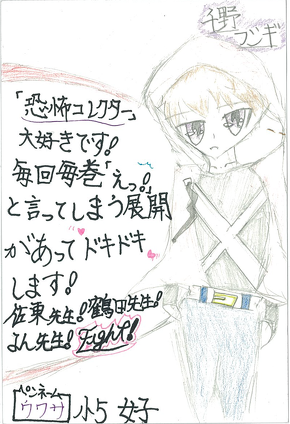 千野
フシギ
「恐怖コレクター」
大好きです!
毎回毎巻「えっ!」
と言ってしまう展開
があってドキドキ
します!
佐東先生!鶴田先生!
よん先生!Fight!
ペンネーム
ウワサ
小5 女子